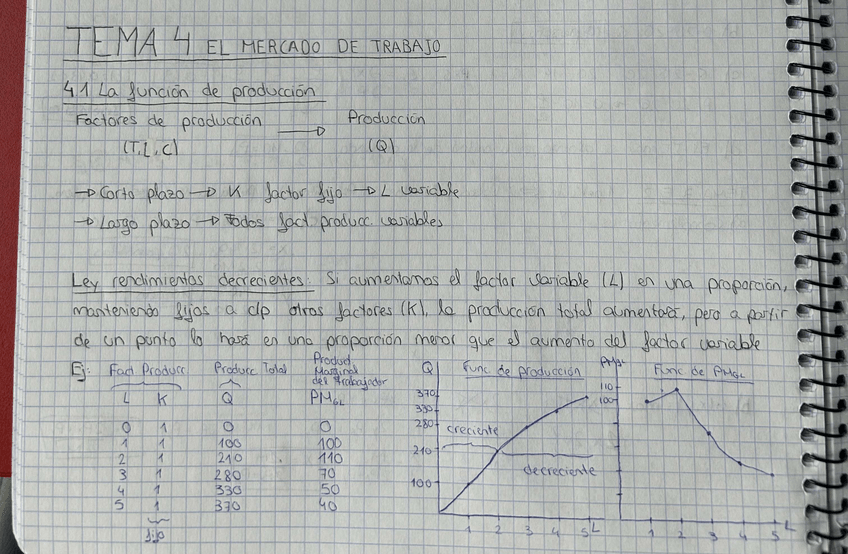 TEMA 4 EL MERCADO DE TRABAJO
4.1 La función de producción
Factores de producción → Producción
(T, L, C) (Q)
→ Corto plazo → K factor fijo → L variable
→ Largo plazo → Todos fact producc. variables
Ley rendimientos decrecientes: Si aumentamos el factor variable (L) en una proporción,
manteniendo fijos a c/p otros factores (K), la producción total aumentará, pero a partir
de un punto lo hará en una proporción menor que el aumento del factor variable
Ej: Fact Producc Producc Total Product Marginal del trabajador
L K Q PMgL
0 1 0 0
1 1 100 100
2 1 210 110
3 1 280 70
4 1 330 50
5 1 370 40
fijo
Q Func de producción
370
330
280
210
100
creciente
decreciente
1 2 3 4 5 L
PMgL Func de PMgL
110
100
1 2 3 4 5 L